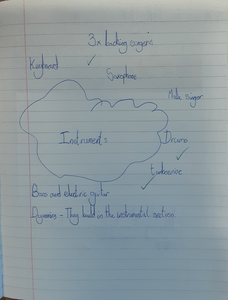 3x backing singers
Keyboard
Saxophone
Male singer
Instruments
Drums
Tambourine
Bass and electric guitar
Dynamics - They build in the instrumental section